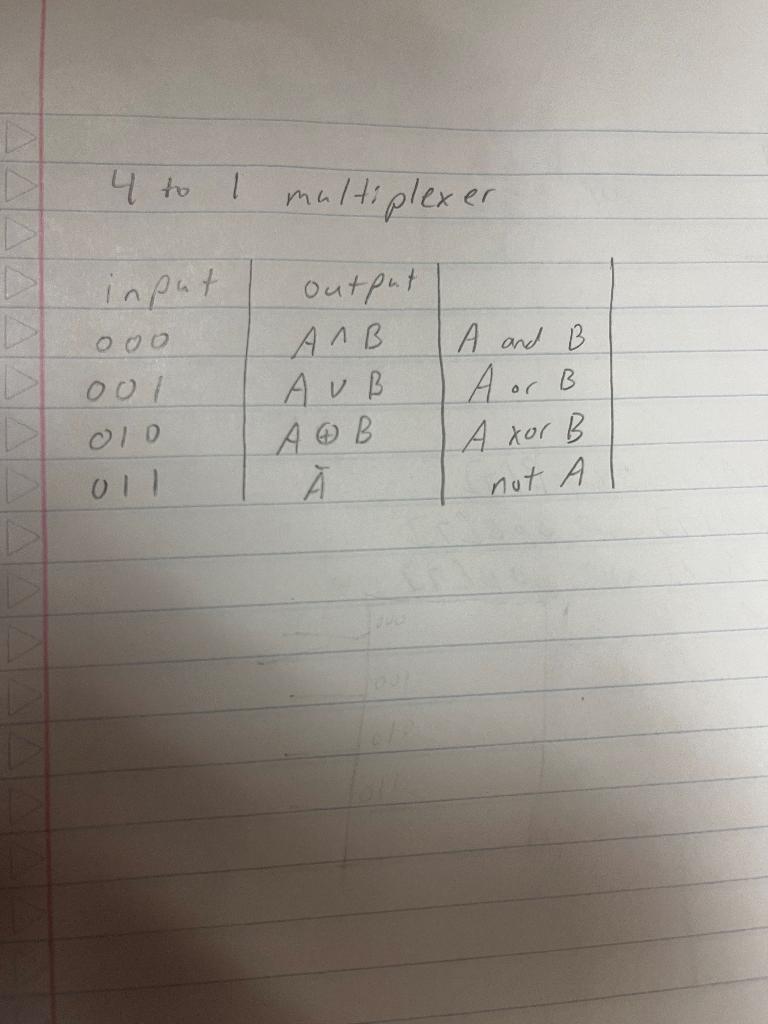 4 to 1 multiplexer
input output
000 A ∧ B A and B
001 A ∨ B A or B
010 A ⊕ B A xor B
011 Ā not A